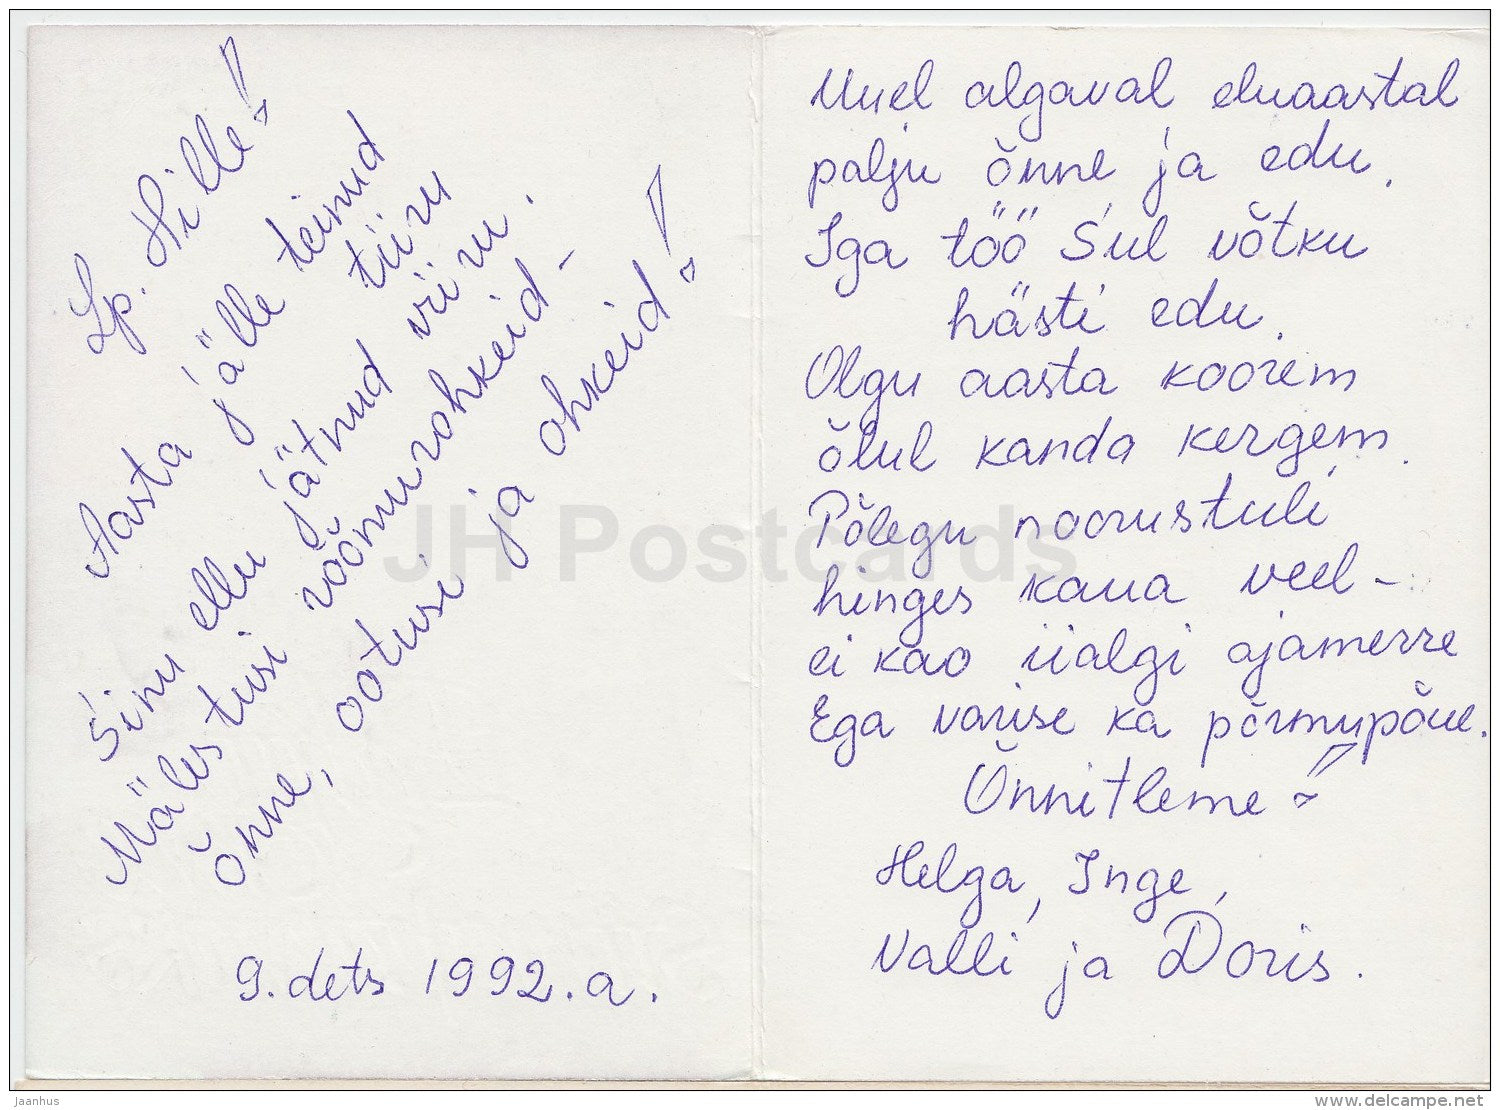 Lp. Hille!
Aasta jälle teinud
tiiru
Sinu ellu jätnud viiru.
Mälestusi rõõmurohkeid -
õnne, ootusi ja ohkeid!
9. dets 1992. a.
Uuel algaval eluaastal
palju õnne ja edu.
Iga töö Sul võtku
hästi edu.
Olgu aasta koorem
õlul kanda kergem.
Põlegu noorustuli
hinges kaua veel -
ei kao iialgi ajamerre
Ega varise ka põrmupõue.
Õnnitleme!
Helga, Inge,
Valli ja Doris.
JH Postcards
Jaanhus
www.delcampe.net